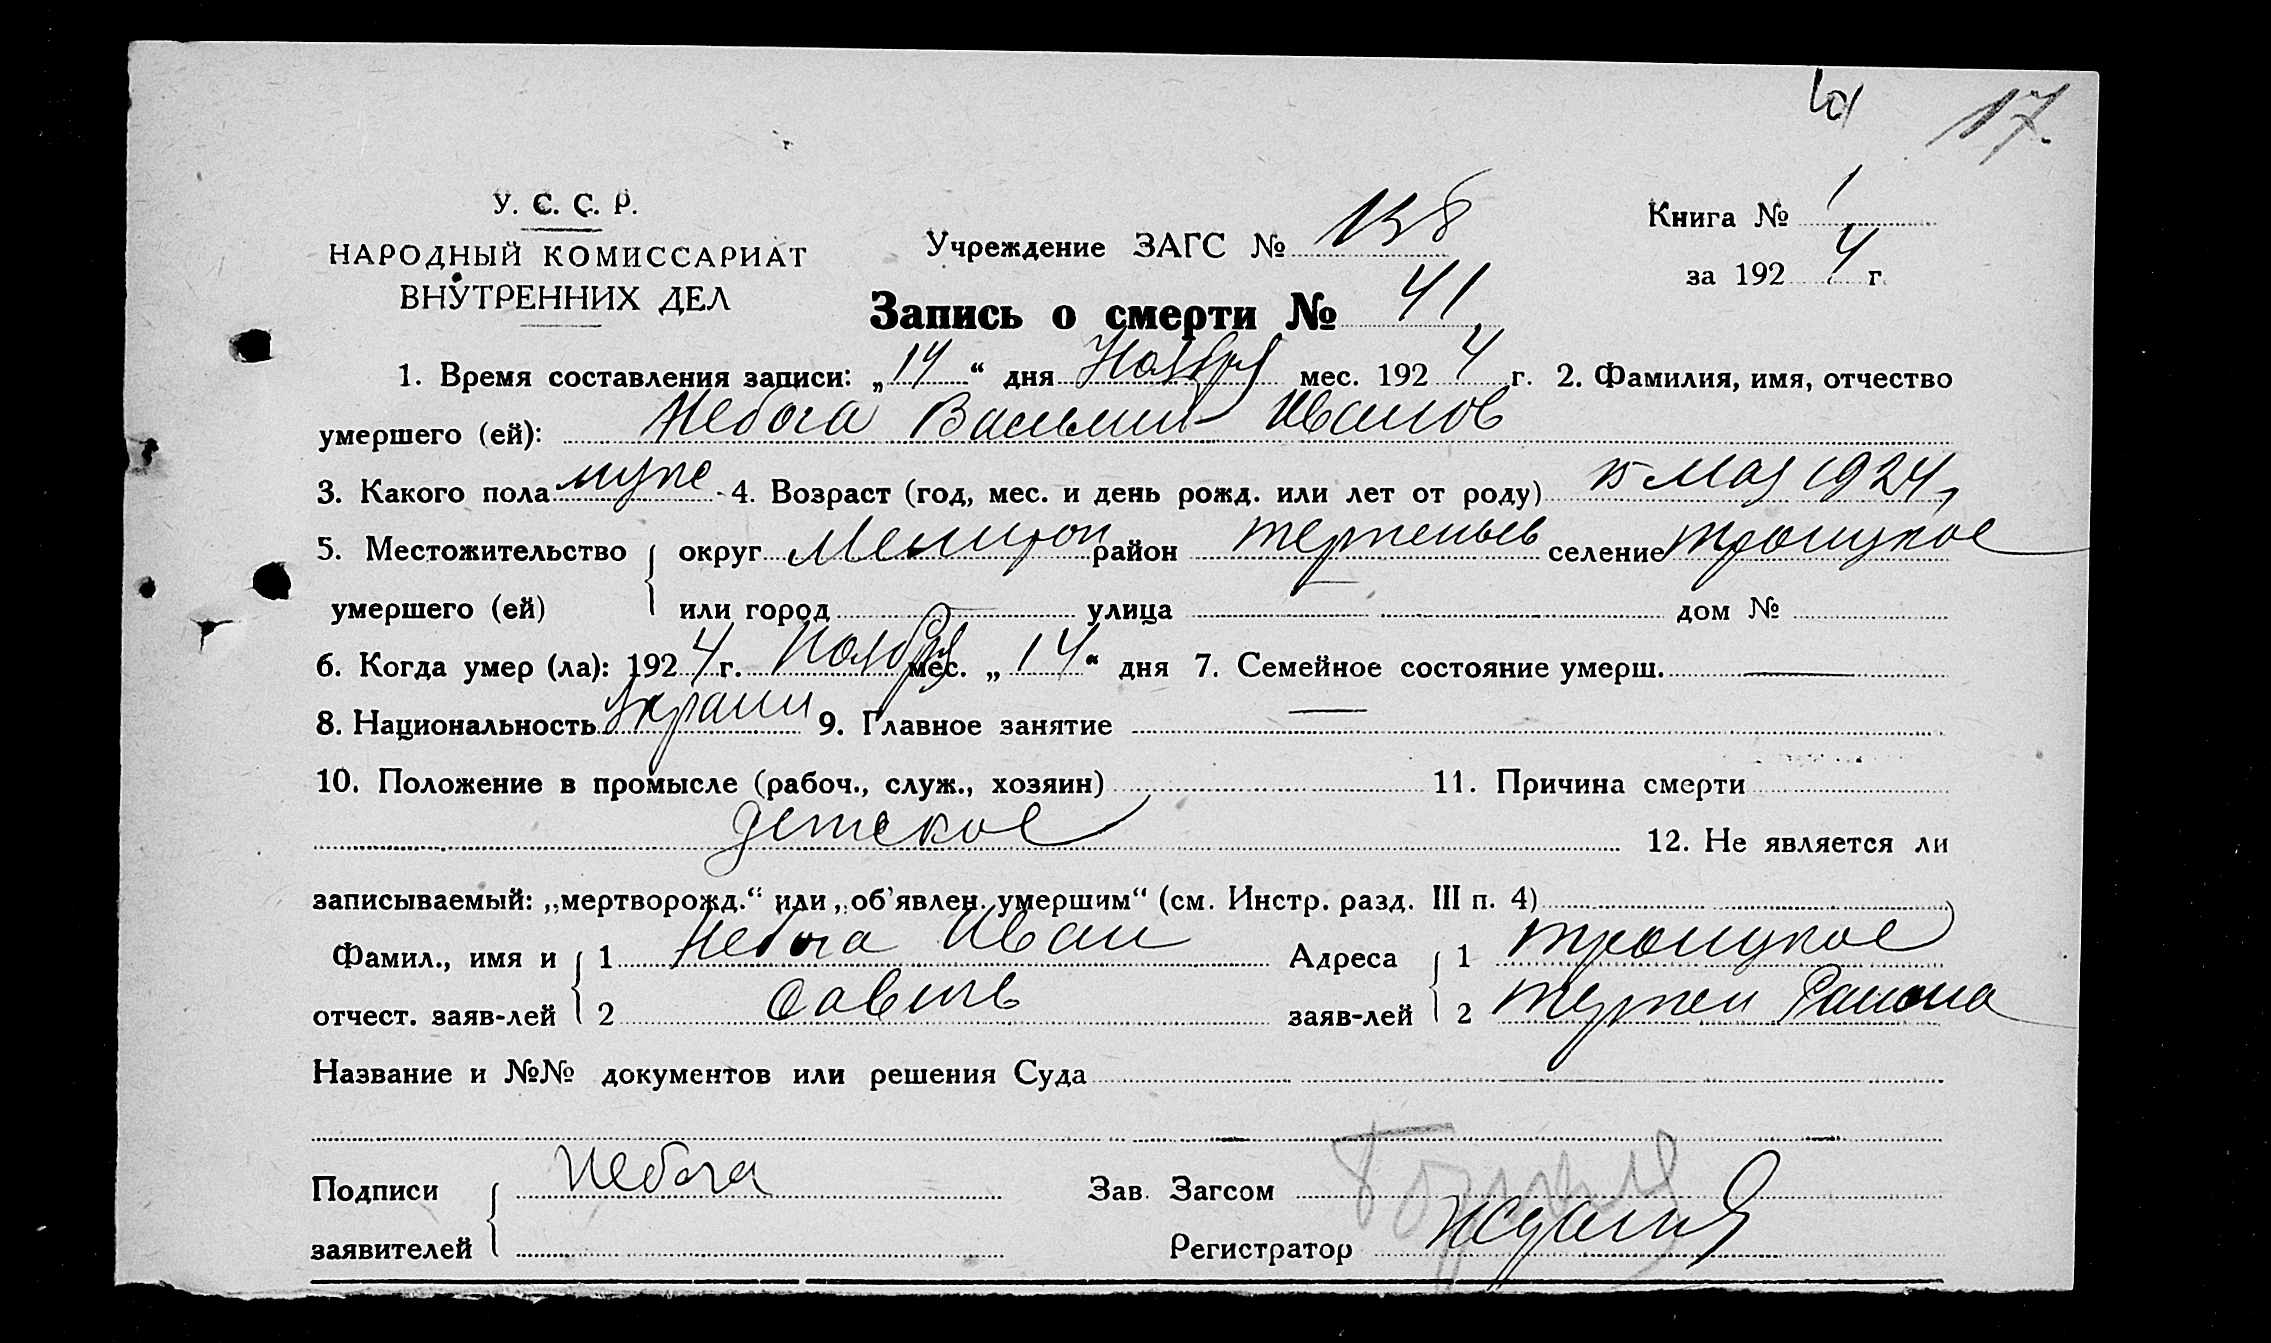 17.
У. С. С. Р.
НАРОДНЫЙ КОМИССАРИАТ
ВНУТРЕННИХ ДЕЛ
Учреждение ЗАГС № 138
Книга № 1
за 1924 г.
Запись о смерти № 41
1. Время составления записи: „14“ дня Ноября мес. 1924 г. 2. Фамилия, имя, отчество
умершего (ей): Небога Василий Иванов
3. Какого пола муж 4. Возраст (год, мес. и день рожд. или лет от роду) 15 Мая 1924
5. Местожительство округ Мелитоп район Терпеньев селение Троицкое
умершего (ей) или город улица дом №
6. Когда умер (ла): 1924 г. Ноября мес. „14“ дня 7. Семейное состояние умерш. —
8. Национальность Украин 9. Главное занятие —
10. Положение в промысле (рабоч., служ., хозяин) 11. Причина смерти
детское 12. Не является ли
записываемый: „мертворожд.“ или „об'явлен. умершим“ (см. Инстр. разд. III п. 4)
Фамил., имя и 1 Небога Иван Адреса 1 Троицкое
отчест. заяв-лей 2 Савив заяв-лей 2 Терпен Района
Название и №№ документов или решения Суда
Подписи Небога Зав. Загсом
заявителей Регистратор